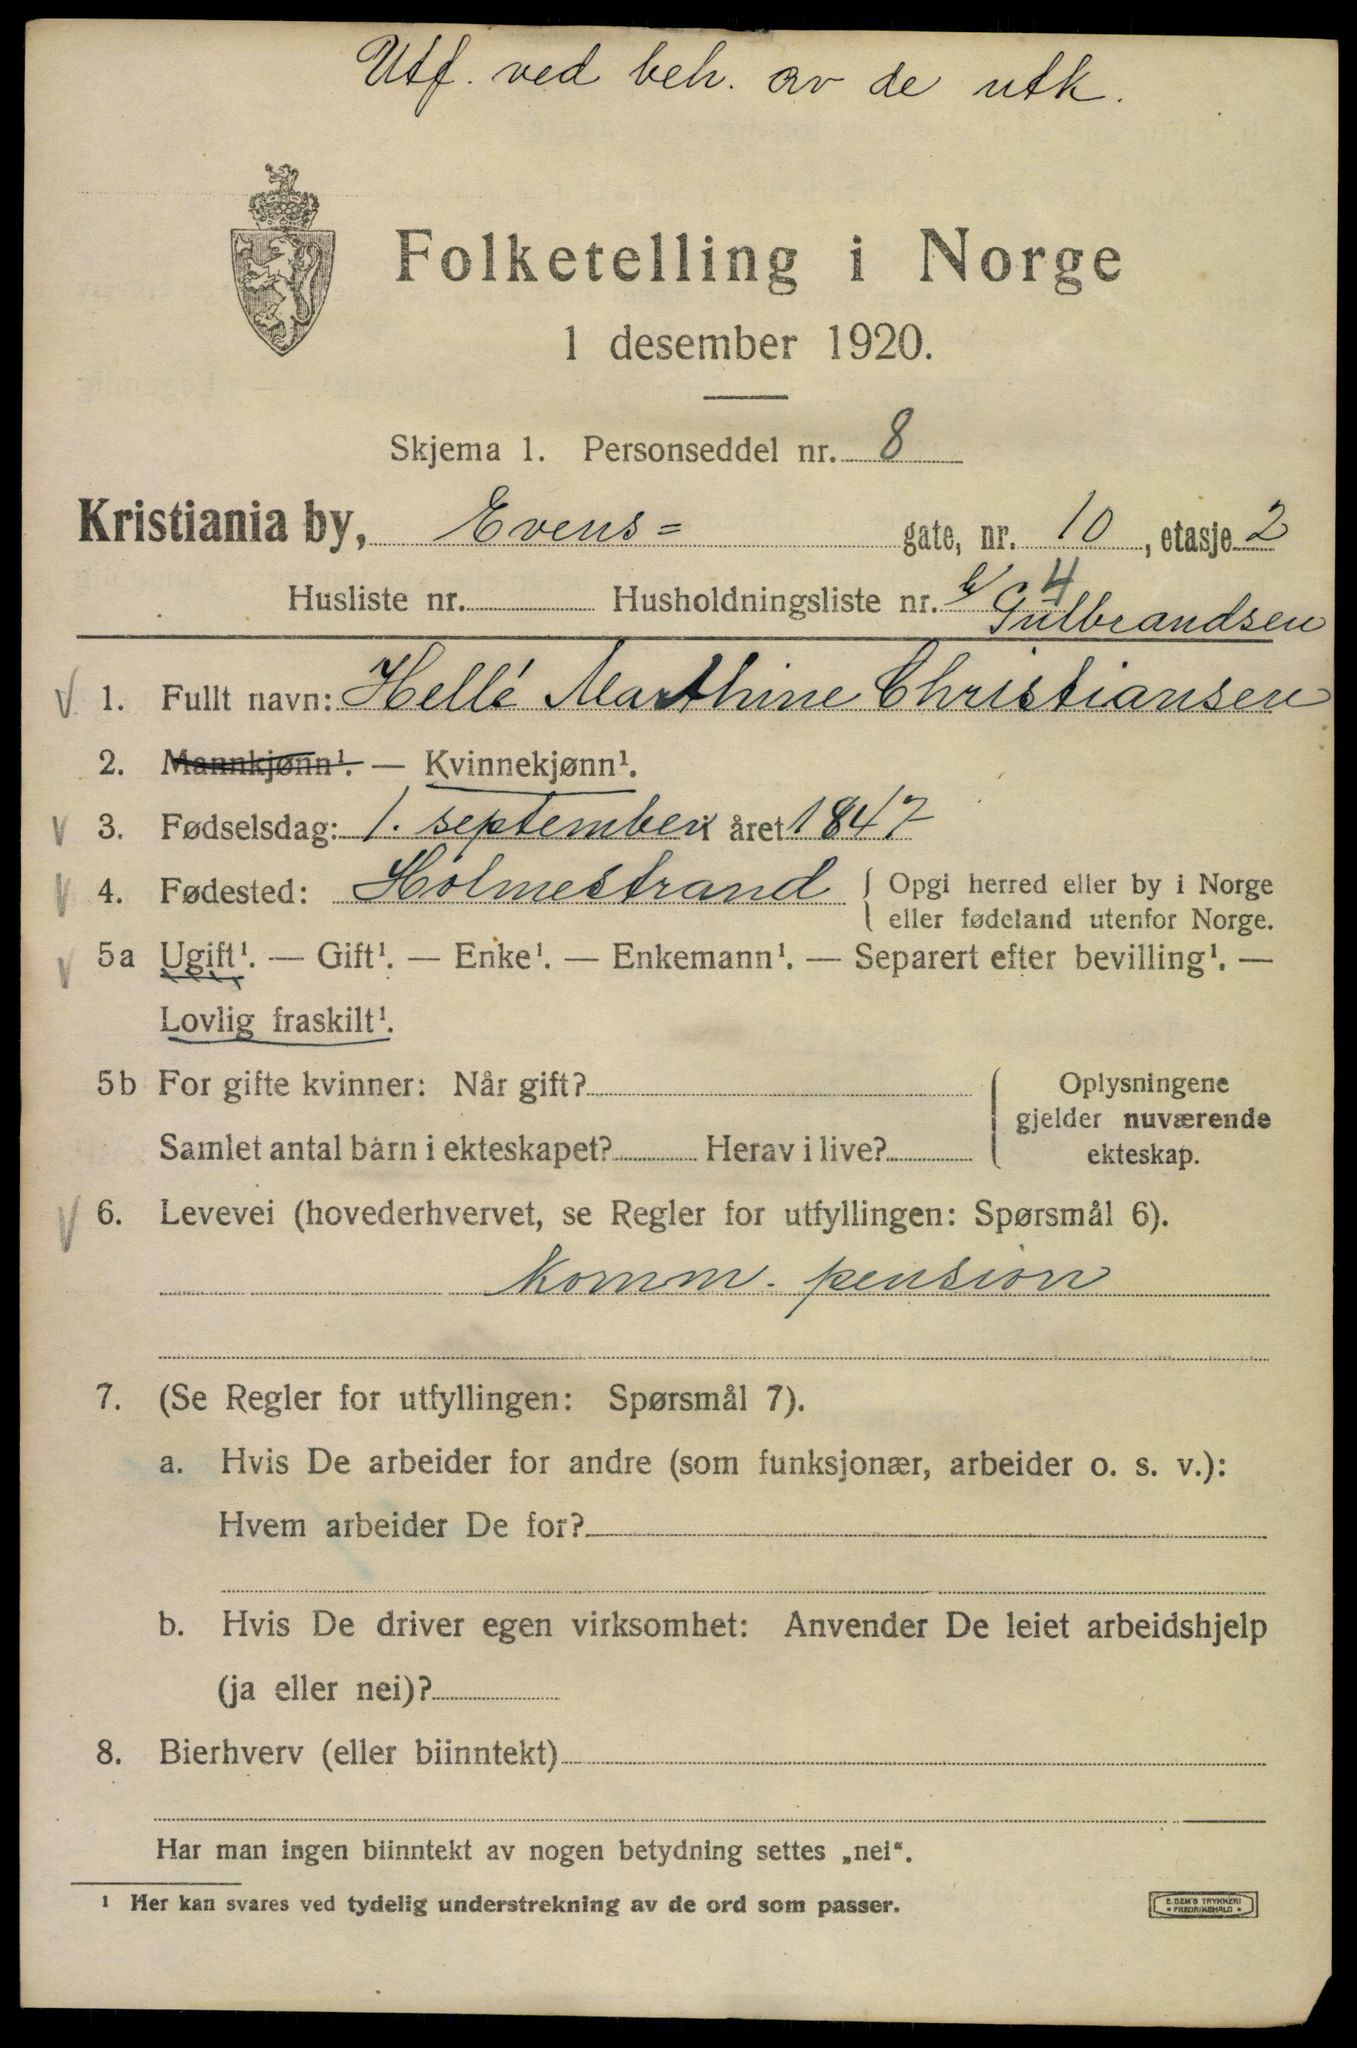 Utf. ved beh. av de utk.
Folketelling i Norge
1 desember 1920.
Skjema 1. Personseddel nr. 8
Kristiania by, Evens= gate, nr. 10, etasje 2
Husliste nr. Husholdningsliste nr. 4
b/ Gulbrandsen
1. Fullt navn: Hellé Marthine Christiansen
2. Mannkjønn¹. — Kvinnekjønn¹.
3. Fødselsdag: 1. september i året 1847
4. Fødested: Holmestrand { Opgi herred eller by i Norge
eller fødeland utenfor Norge.
5a Ugift¹. — Gift¹. — Enke¹. — Enkemann¹. — Separert efter bevilling¹. —
Lovlig fraskilt¹.
5b For gifte kvinner: Når gift? Oplysningene
gjelder nuværende
Samlet antal barn i ekteskapet? Herav i live? ekteskap.
6. Levevei (hovederhvervet, se Regler for utfyllingen: Spørsmål 6).
Komm. pension
7. (Se Regler for utfyllingen: Spørsmål 7).
a. Hvis De arbeider for andre (som funksjonær, arbeider o. s. v.):
Hvem arbeider De for?
b. Hvis De driver egen virksomhet: Anvender De leiet arbeidshjelp
(ja eller nei)?
8. Bierhverv (eller biinntekt)
Har man ingen biinntekt av nogen betydning settes „nei“.
¹ Her kan svares ved tydelig understrekning av de ord som passer.
E. SEM'S TRYKKERI
• FREDRIKSHALD •